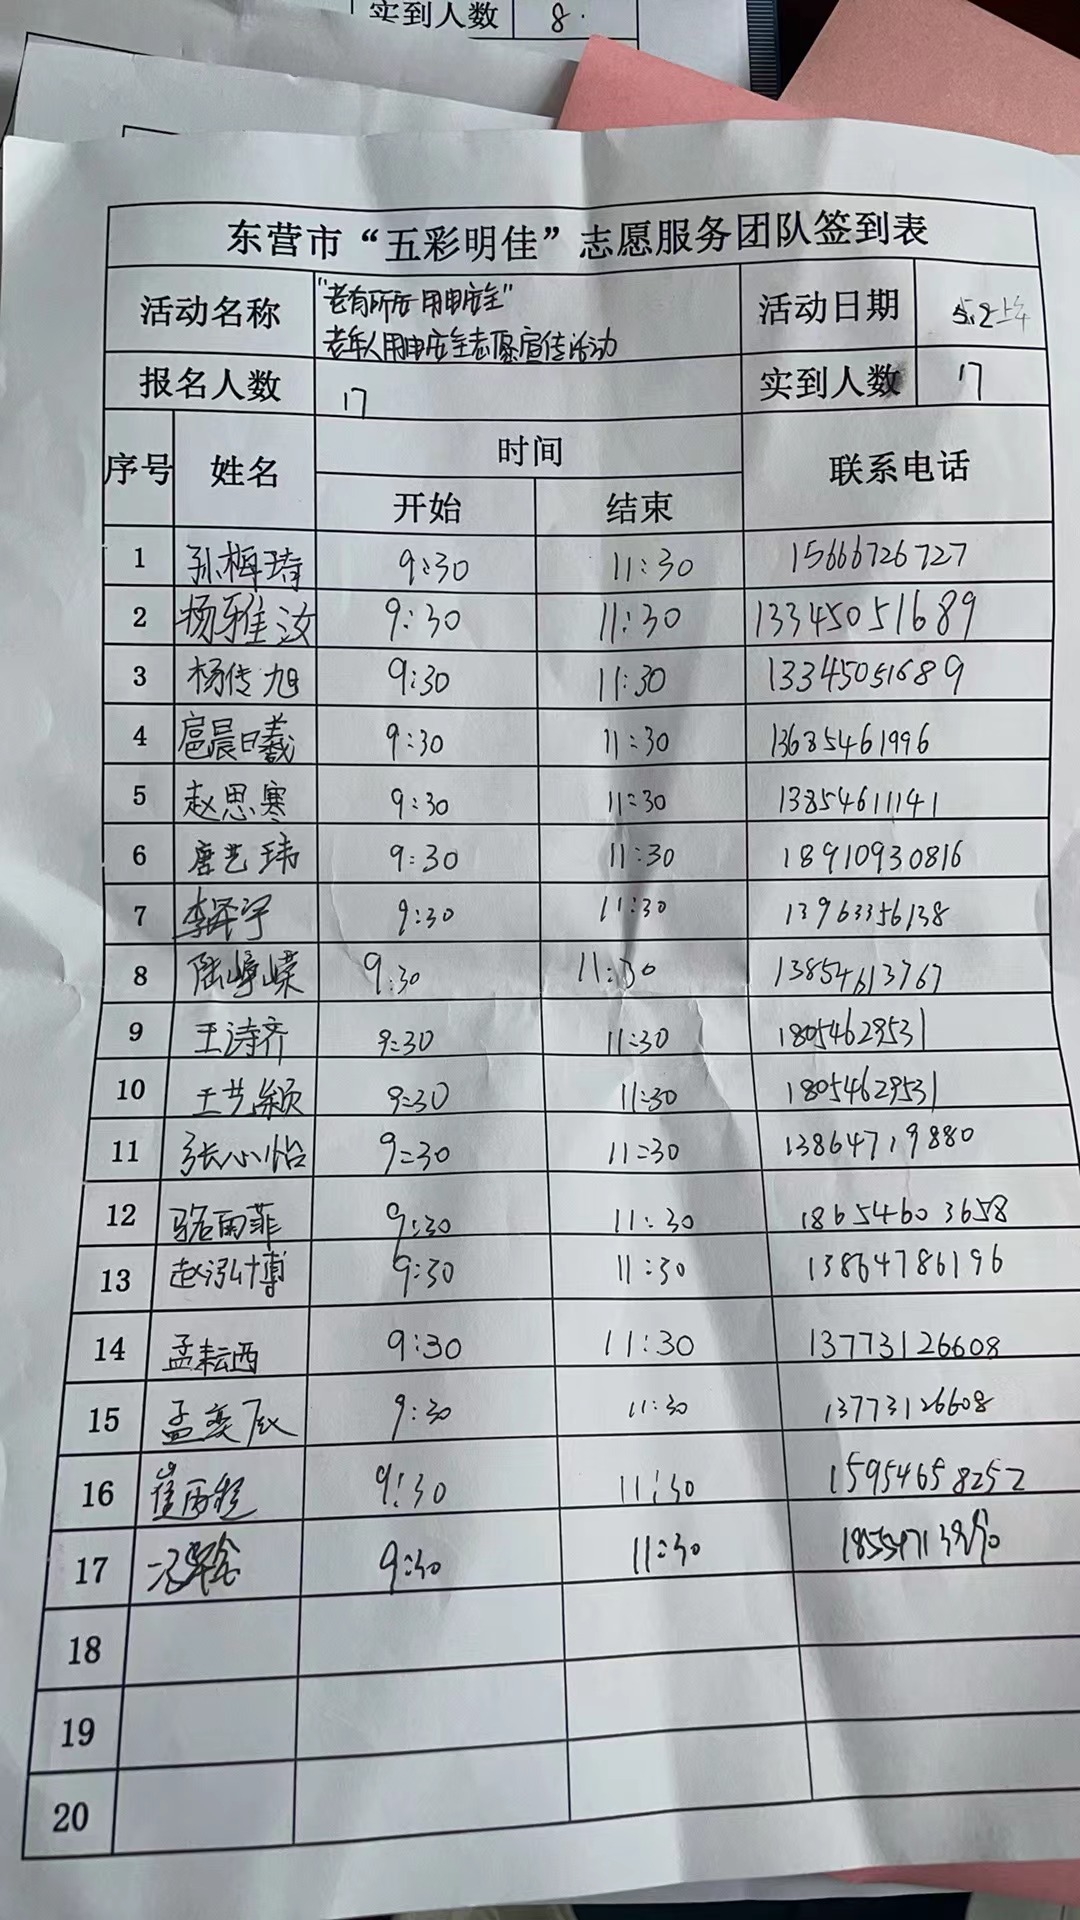 实到人数 8.
东营市“五彩明佳”志愿服务团队签到表
活动名称 “老有所安 用电安全” 活动日期 5.2上午
老年人用电安全志愿宣传活动
报名人数 17 实到人数 17
序号 姓名 时间 联系电话
开始 结束
1 孙梅琦 9:30 11:30 15666726727
2 杨雅汝 9:30 11:30 13345051689
3 杨传旭 9:30 11:30 13345051689
4 扈晨曦 9:30 11:30 13685461996
5 赵思寒 9:30 11:30 13854611141
6 唐艺玮 9:30 11:30 18910930816
7 李泽宇 9:30 11:30 13963356138
8 陆嶂嵘 9:30 11:30 13854613767
9 王诗齐 9:30 11:30 18054629531
10 王艺颖 9:30 11:30 18054629531
11 张心怡 9:30 11:30 13864719880
12 骆雨菲 9:30 11:30 18654603658
13 赵泓博 9:30 11:30 13864786196
14 孟耘西 9:30 11:30 13773126608
15 孟奕辰 9:30 11:30 13773126608
16 崔 9:30 11:30 15954658252
17 9:30 11:30
18
19
20